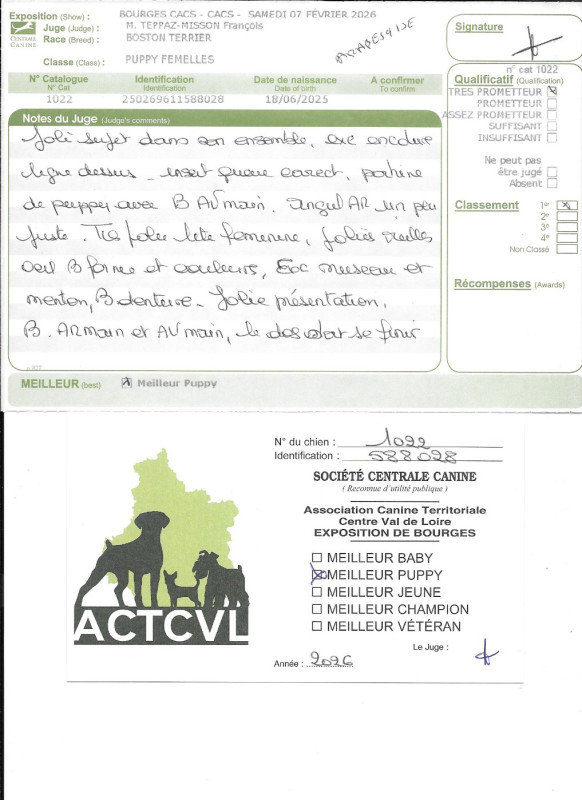 Exposition (Show) : BOURGES CACS - CACS - SAMEDI 07 FÉVRIER 2026
Juge (Judge) : M. TEPPAZ-MISSON François
Race (Breed) : BOSTON TERRIER
Classe (Class) : PUPPY FEMELLES
CENTRALE CANINE
Signature
N° Catalogue Identification Date de naissance A confirmer
N° Cat Identification Date of birth To confirm
1022 250269611588028 18/06/2025
n° cat 1022
Qualificatif (Qualification)
TRES PROMETTEUR
PROMETTEUR
ASSEZ PROMETTEUR
SUFFISANT
INSUFFISANT
Ne peut pas
être jugé
Absent
Classement 1er
2e
3e
4e
Non Classé
Récompenses (Awards)
Notes du Juge (Judge's comments)
Joli sujet dans son ensemble, exc encolure
ligne dessus - insert queue correct, poitrine
de puppy avec B AV main. angul AR un peu
juste. Très jolie tête féminine, jolies oreilles
oeil B forme et couleurs, Exc museau et
menton, B denture - Jolie présentation,
B. AR main et AV main, le dos doit se finir
MEILLEUR (best) Meilleur Puppy
N° du chien : 1022
Identification : 588028
SOCIÉTÉ CENTRALE CANINE
( Reconnue d'utilité publique )
Association Canine Territoriale
Centre Val de Loire
EXPOSITION DE BOURGES
MEILLEUR BABY
MEILLEUR PUPPY
MEILLEUR JEUNE
MEILLEUR CHAMPION
MEILLEUR VÉTÉRAN
ACTCVL
Le Juge :
Année : 2026